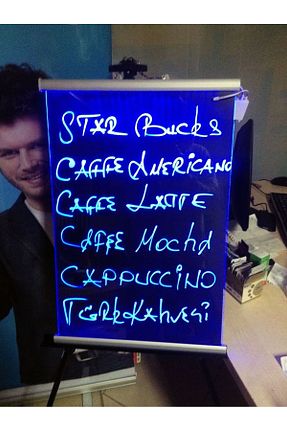 STAR Bucks
CAFFE AMERICANO
CAFFE LATTE
CAFFE Mocha
CAPPUCCINO
TürkKahvesi